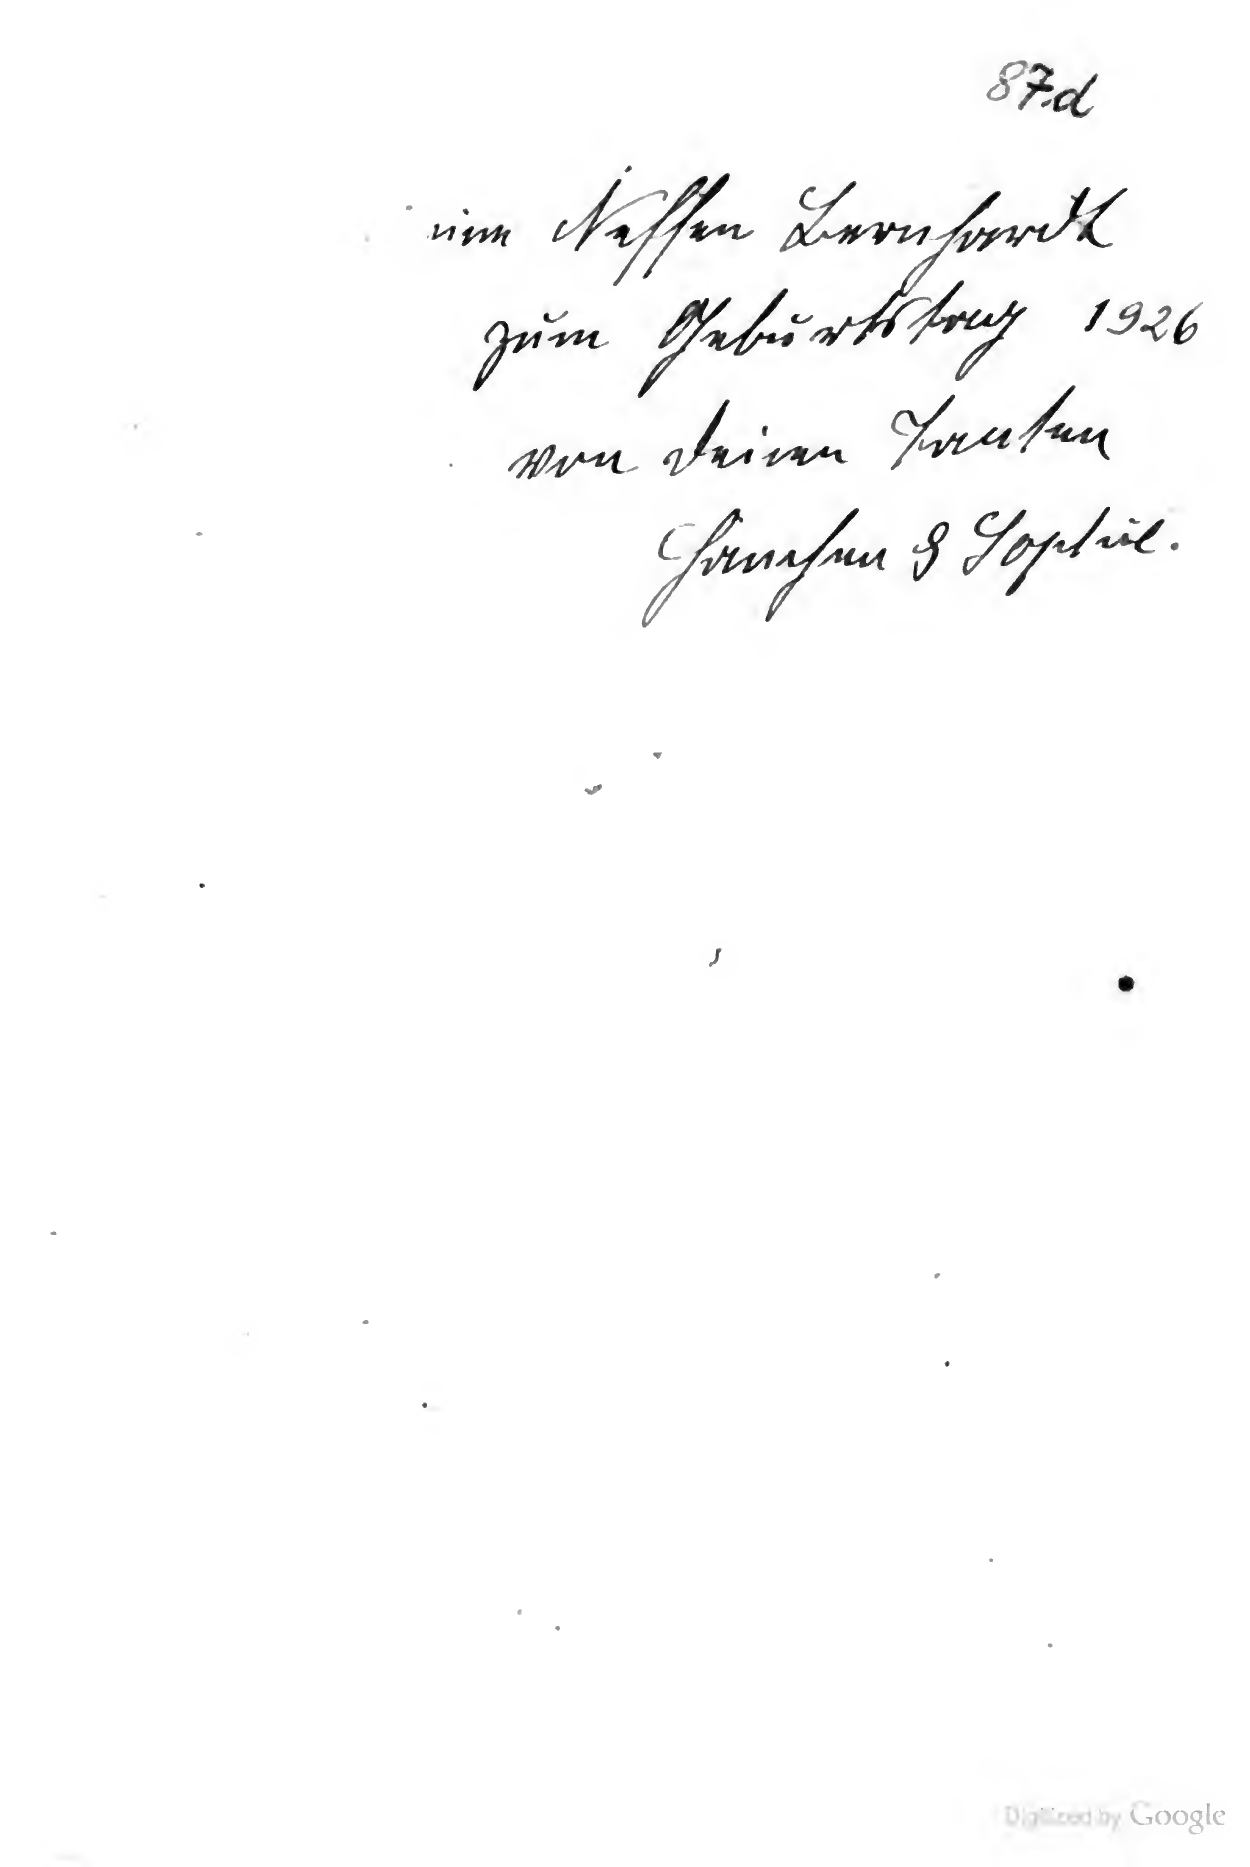 87.d
Neffen Bernhardt
zum Geburtstag 1926
von Deinen Tanten
Hanchen & Sophie.
Digitized by Google